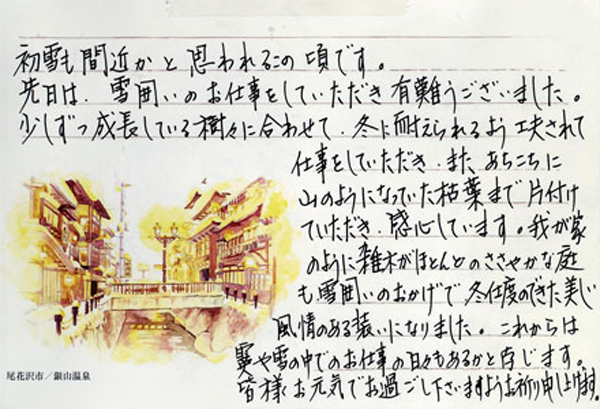 初雪も間近かと思われるこの頃です。
先日は、雪囲いのお仕事をしていただき有難うございました。
少しずつ成長している樹々に合わせて、冬に耐えられるよう工夫されて
仕事をしていただき、また、あちこちに
山のようになっていた枯葉まで片付け
ていただき、感心しています。我が家
のように雑木がほとんどのささやかな庭
も雪囲いのおかげで冬仕度のできた美しい
風情のある装いになりました。これからは
霙や雪の中でのお仕事の日々もあるかと存じます。
皆様、お元気でお過ごし下さいますようお祈り申し上げます。
尾花沢市／銀山温泉